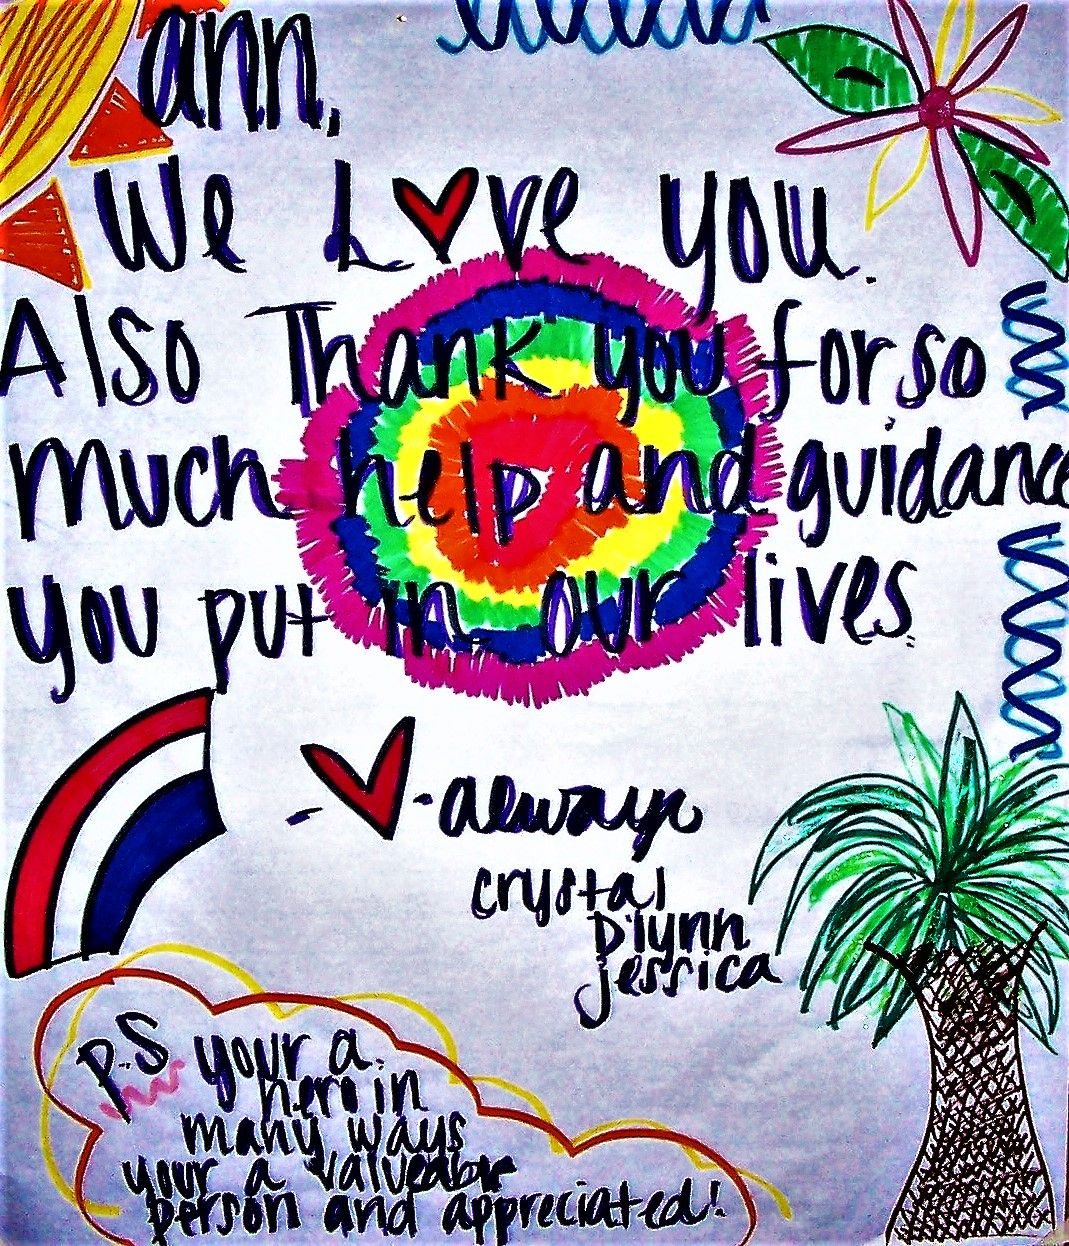 ann,
We L❤ve you.
Also Thank you for so
much help and guidance
you put in our lives.
-❤-always
crystal
D'lynn
Jessica
P.S your a
hero in
many ways
your a valueable
person and appreciated!